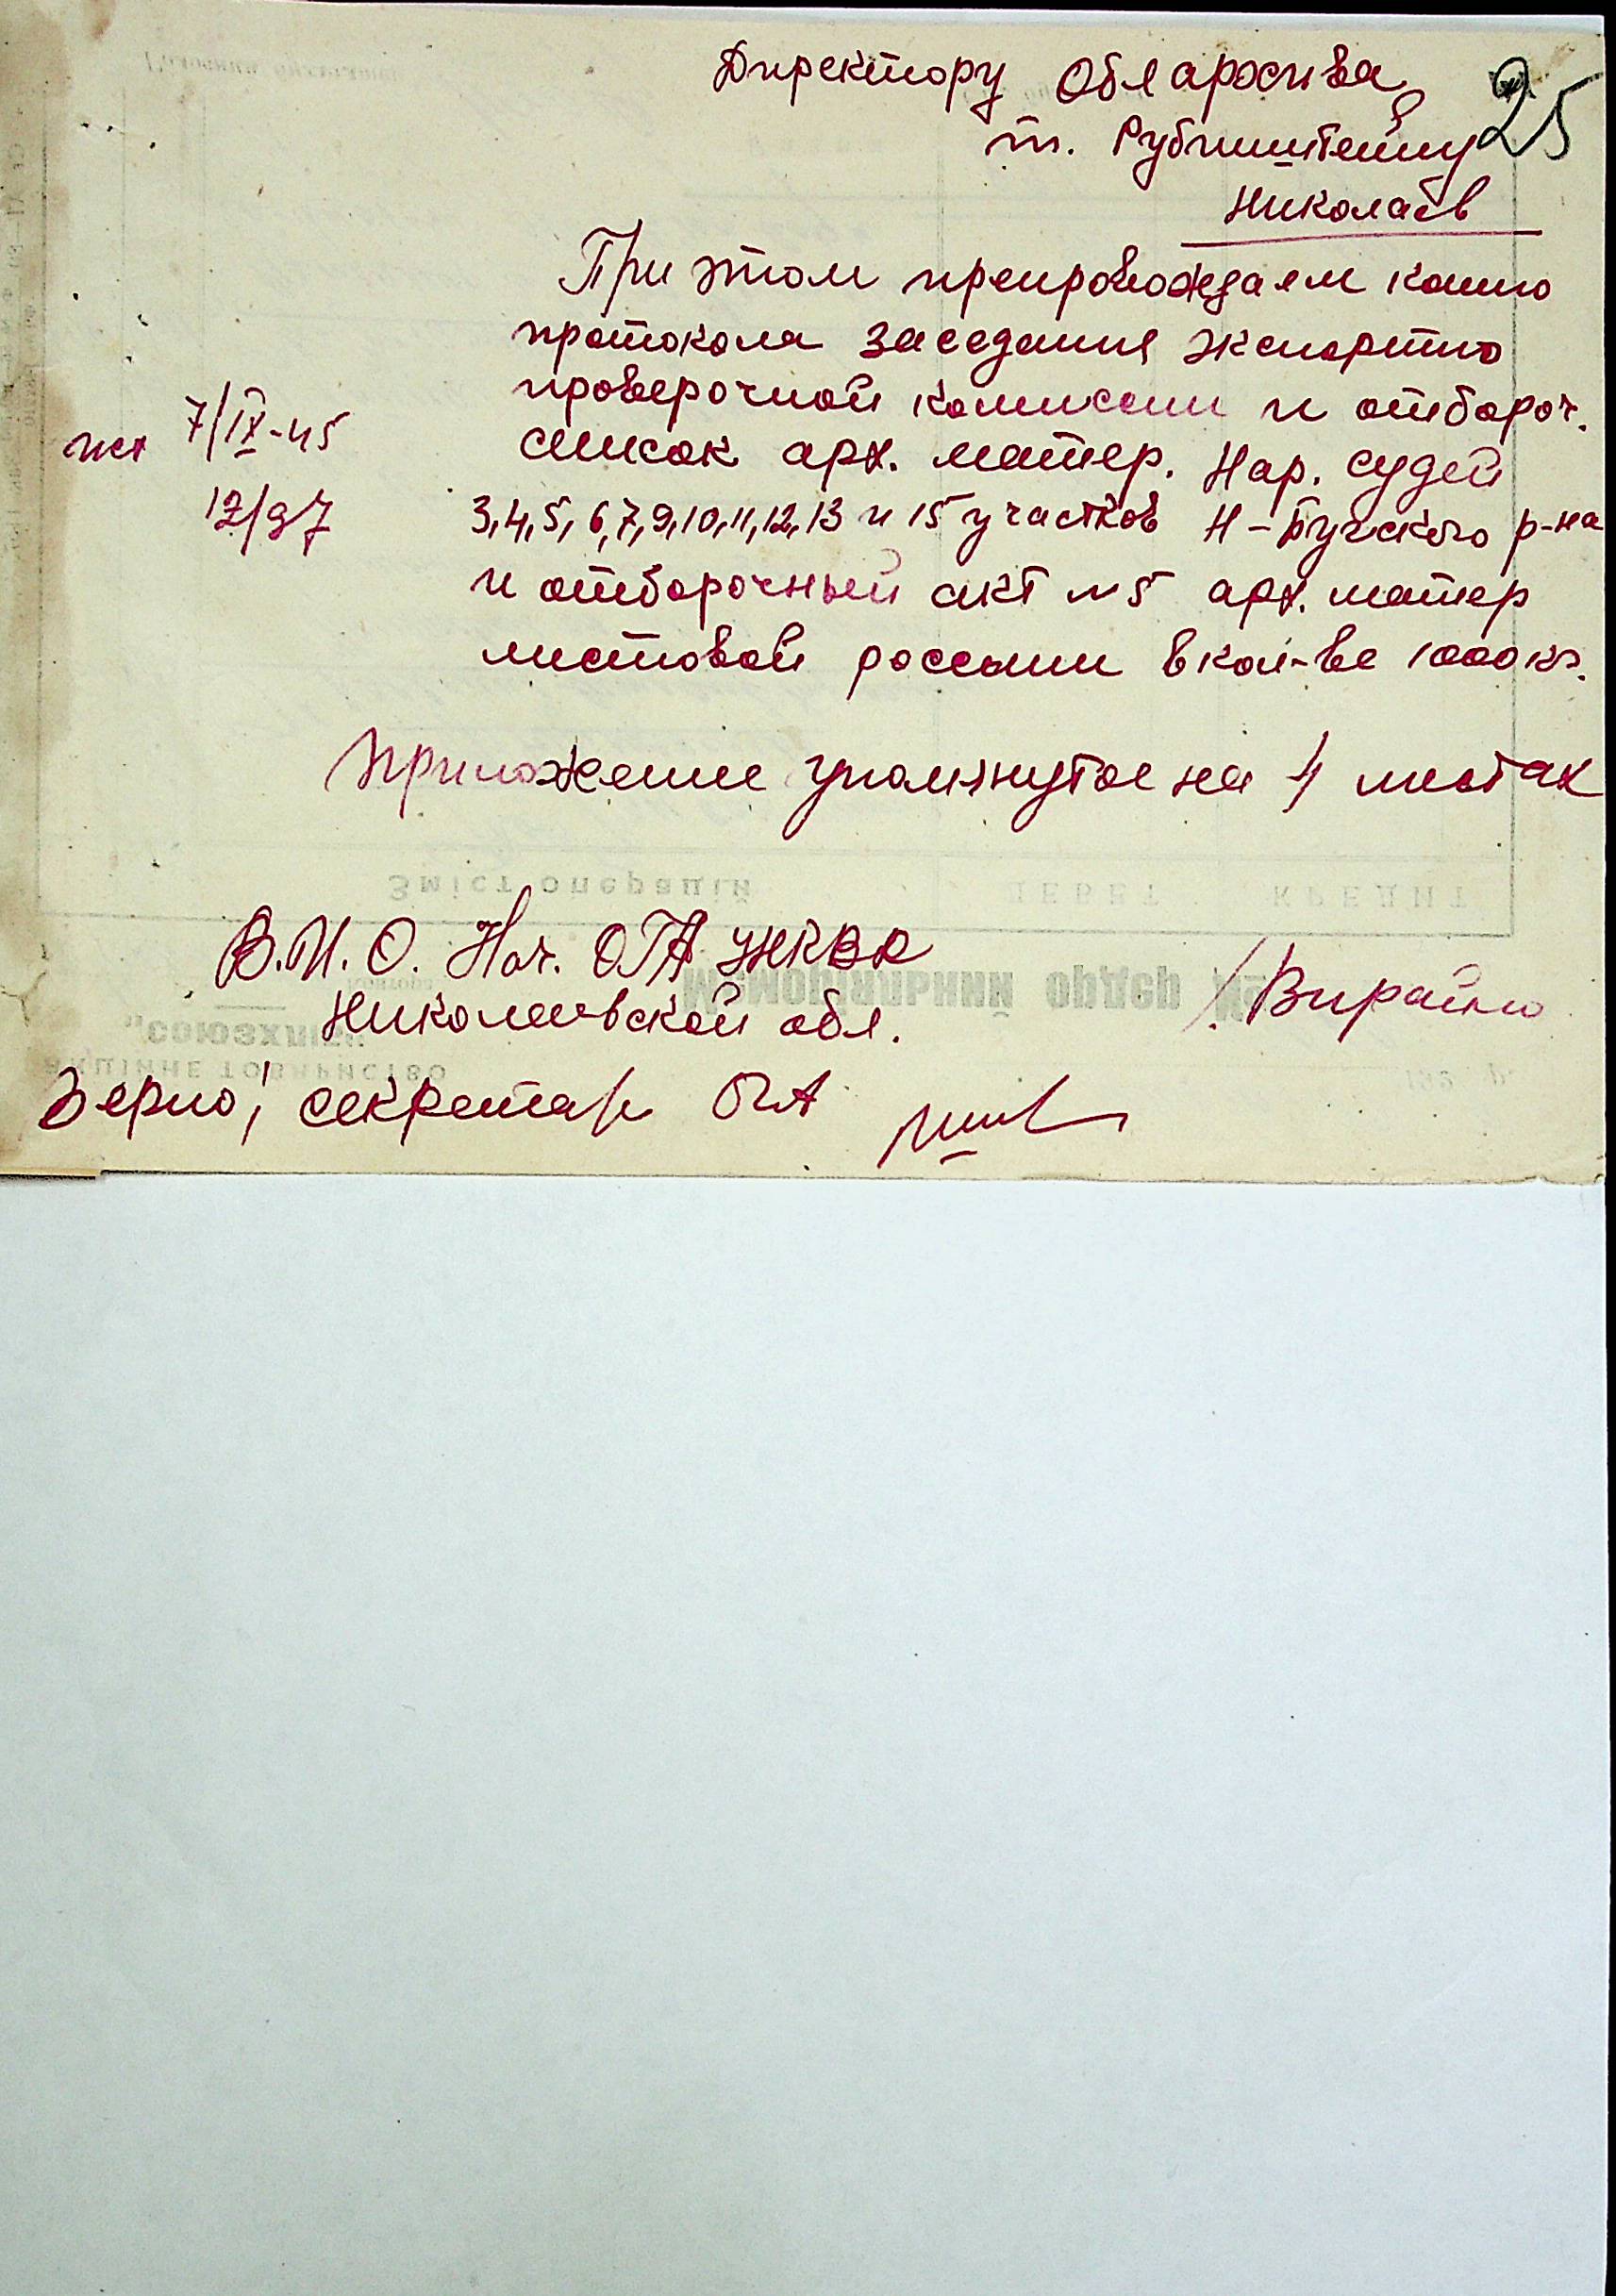 25
Директору Облархива
т. Рубинштейну
Николаев
При этом препровождаем копию
протокола заседания экспертно
проверочной комиссии и отбороч.
список арх. матер. Нар. судей
7/IX-45
12/97
3,4,5,6,7,9,10,11,12,13 и 15 участков Н-Бугского р-на
и отборочный акт №5 арх. матер
листовой россыпи в кол-ве 1000 кг.
Приложение упомянутое на 4 листах
Зміст операцій ДЕБЕТ КРЕДИТ
В.И.О. Нач. ОГА УНКВД
Меморіяльний ордер №
Николаевской обл.
акційне товариство
Верно: секретарь ОГА